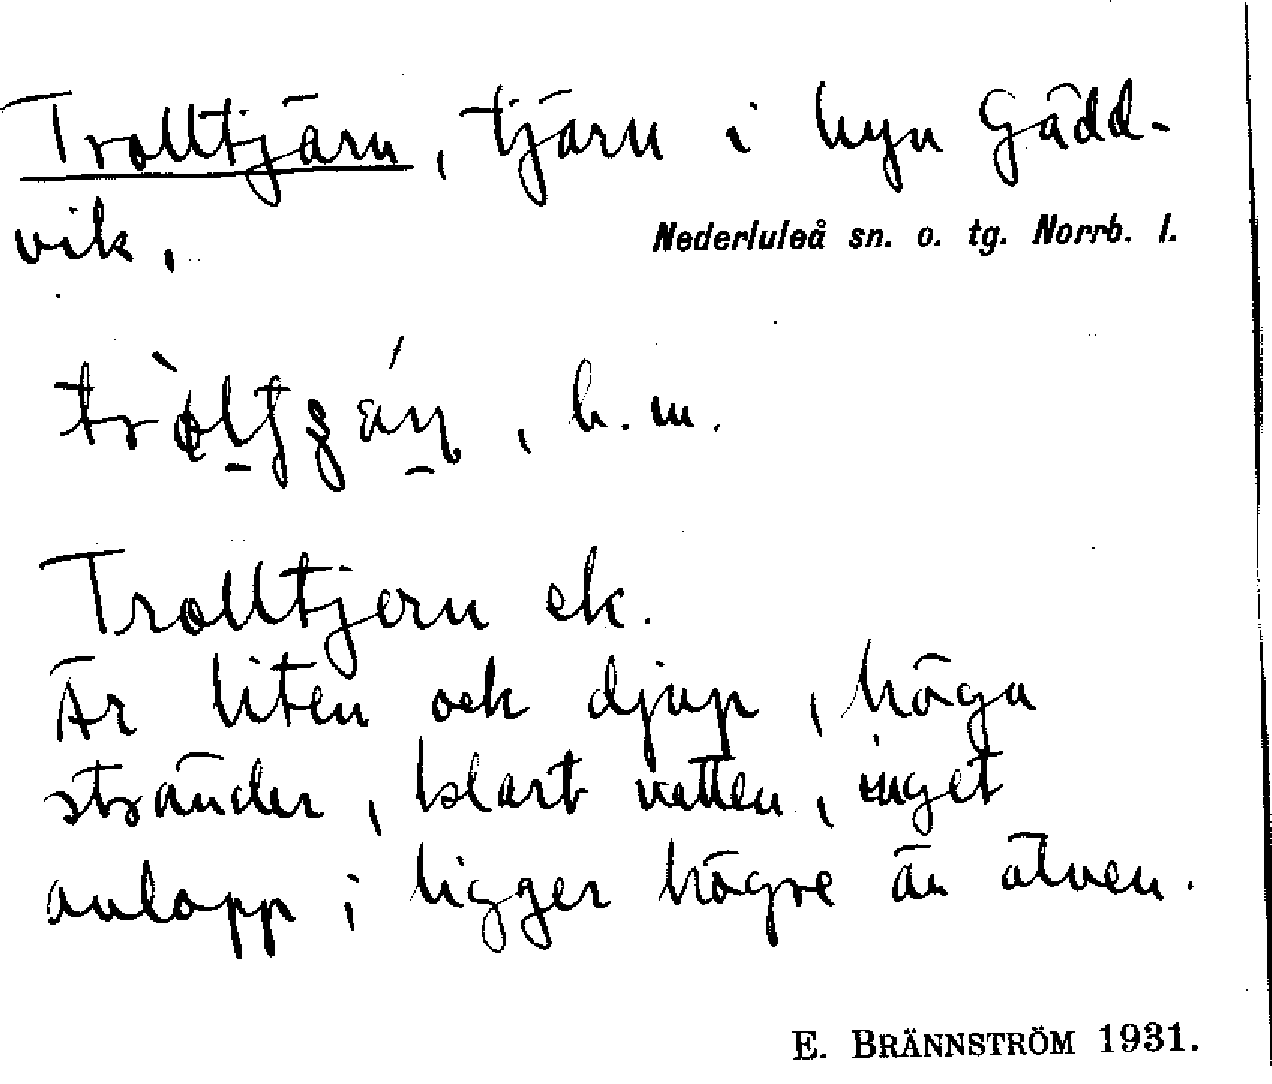 Trolltjärn, tjärn i byn Gädd-
vik.
Nederluleå sn. o. tg. Norrb. l.
, b. m.
Trolltjern ek.
Är liten och djup, höga
stränder, klart vatten, inget
avlopp; ligger högre än älven.
E. BRÄNNSTRÖM 1931.